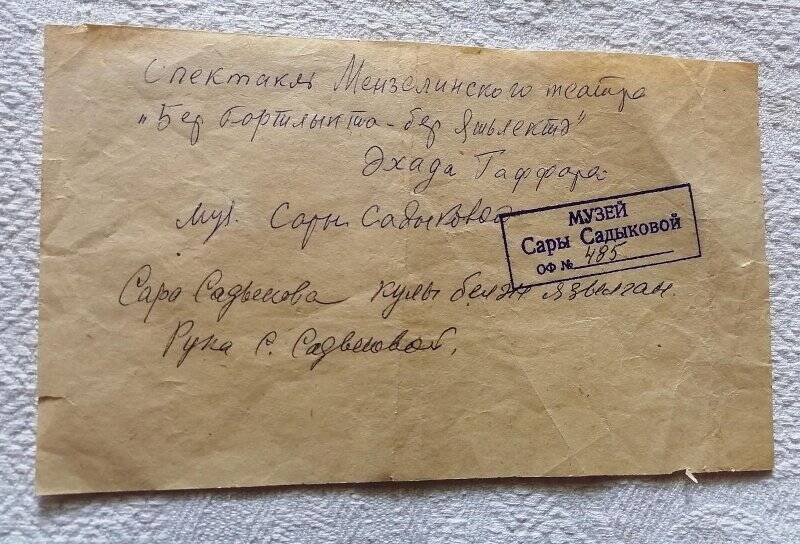 Спектакль Мензелинского театра
„Бер картлыкта - бер яшьлектә"
Әхәдә Гаффара
муз. Сары Садыковой
МУЗЕЙ
Сары Садыковой
ОФ № 485
Сара Садыкова кулы белән язылган.
Рука С. Садыковой.